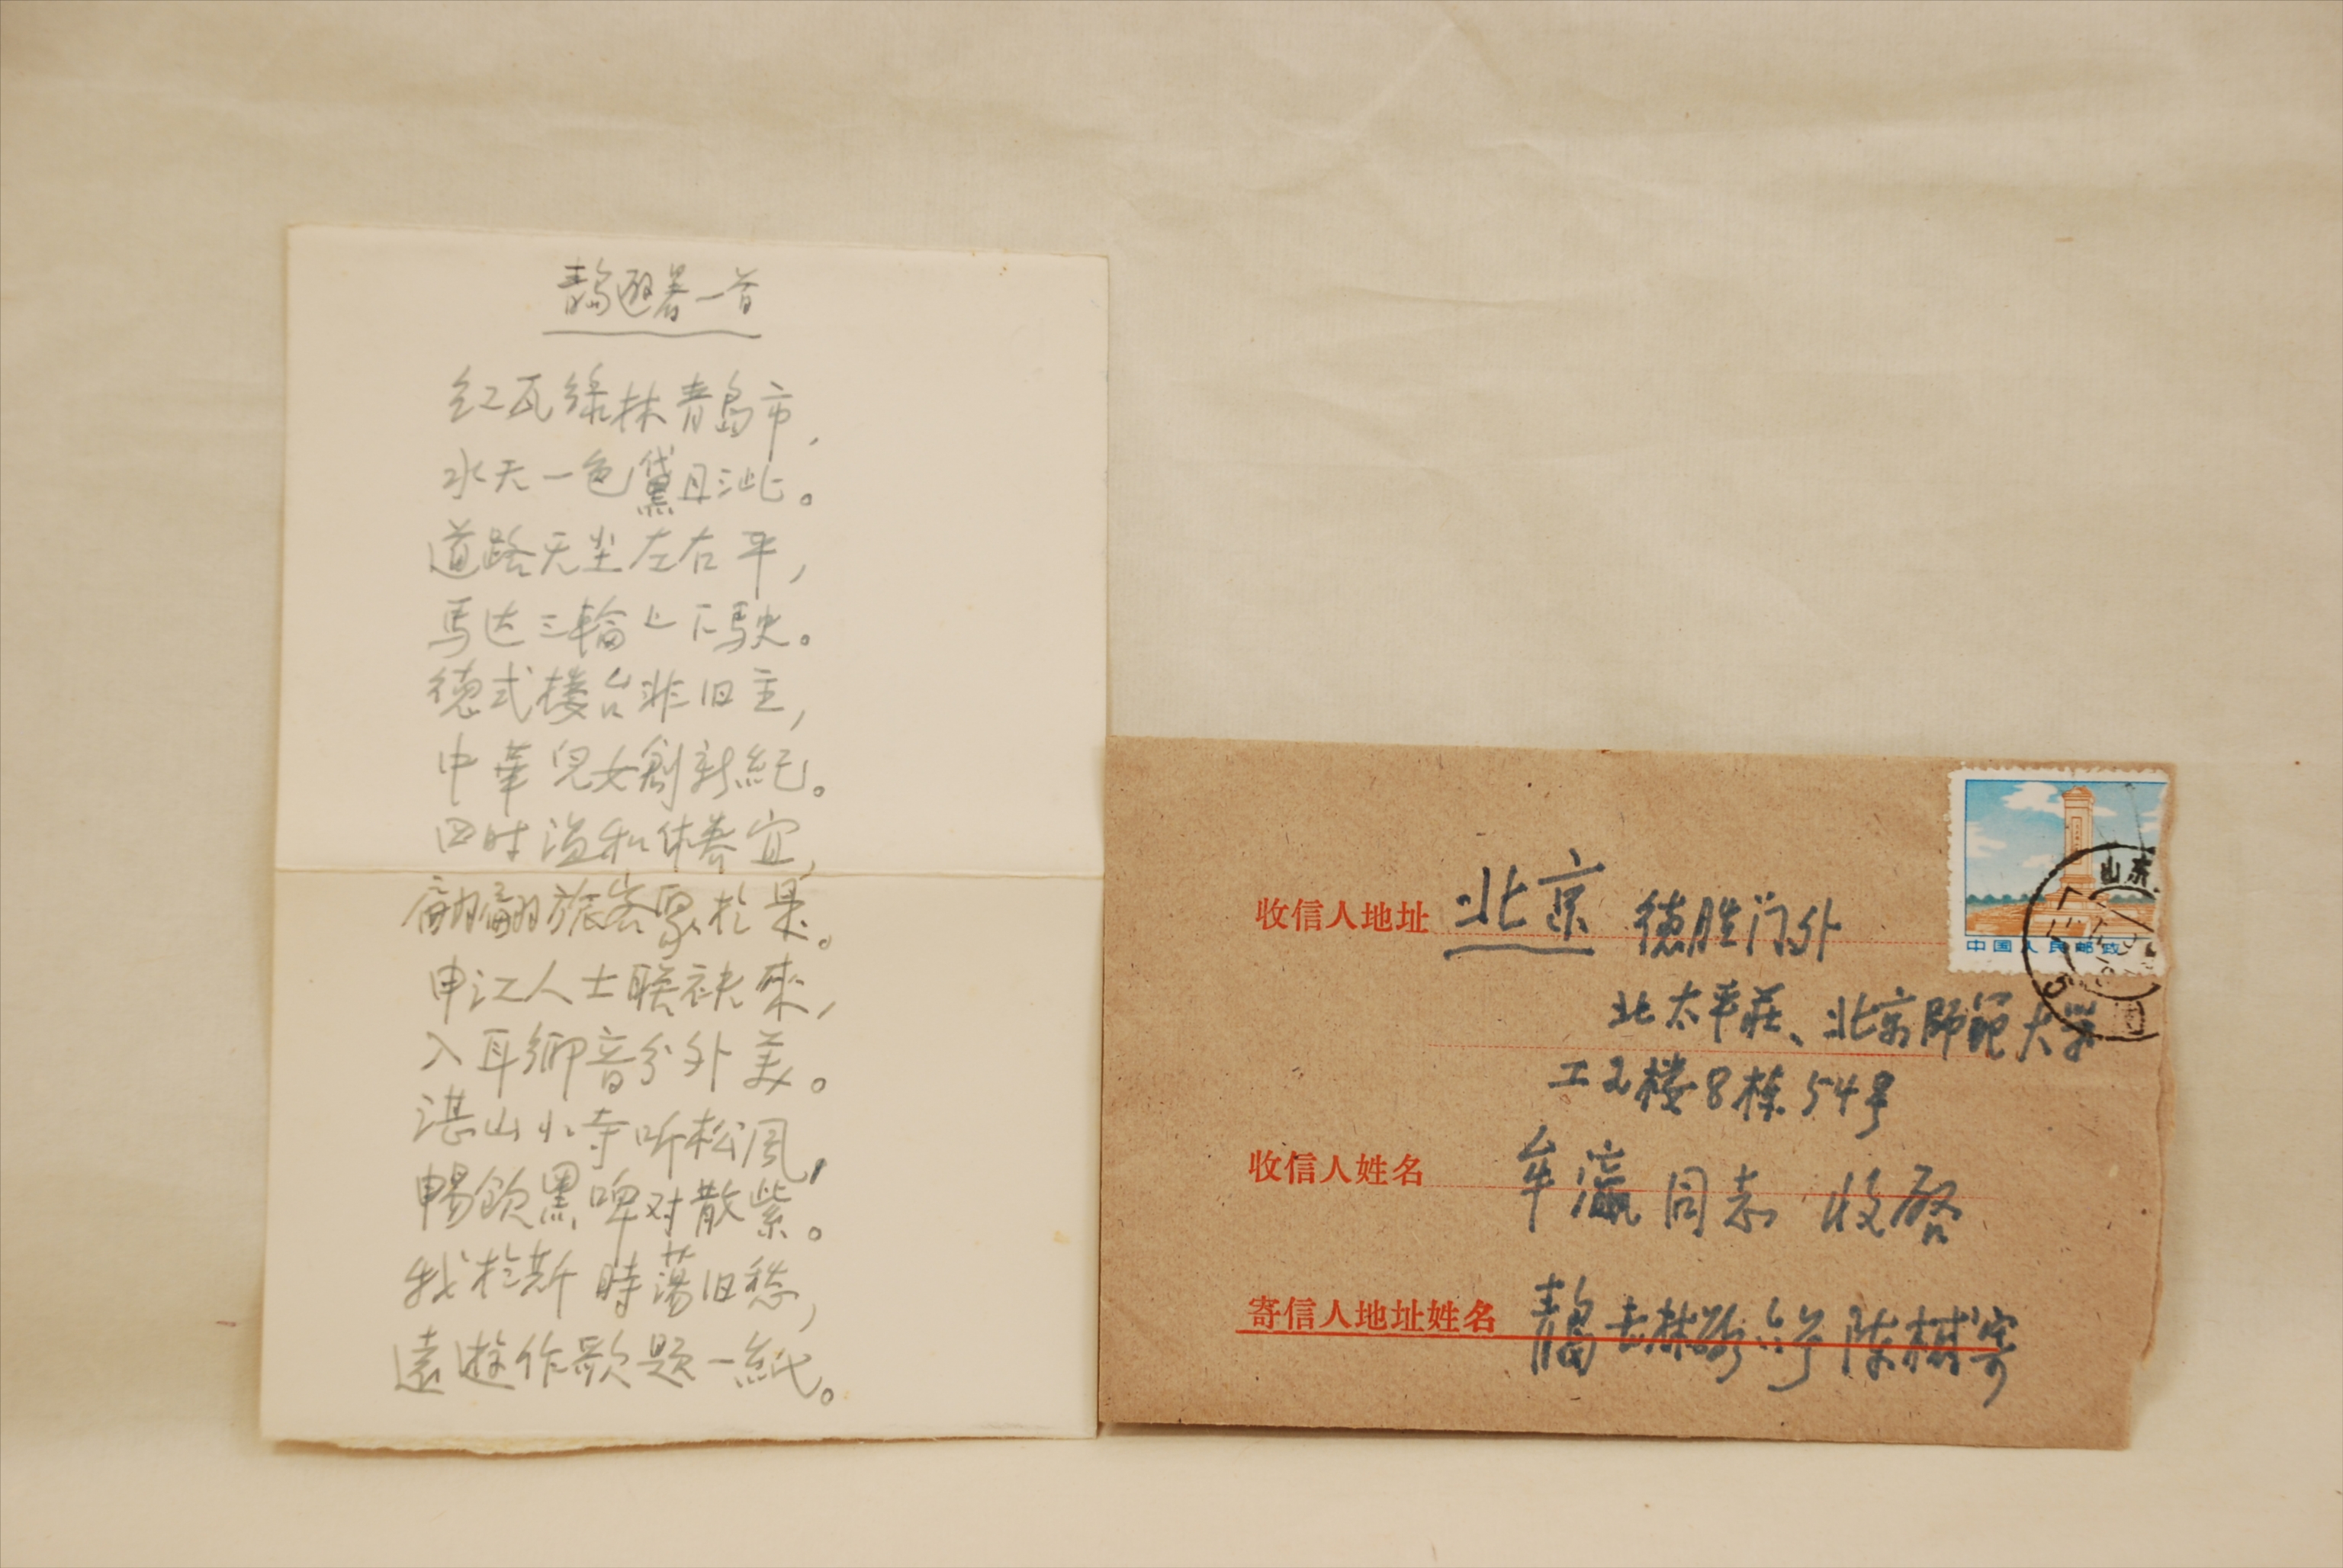 青岛避暑一首
红瓦绿林青島市，
水天一色黛且泚。
道路无尘左右平，
馬达三輪上下駛。
德式楼台非旧主，
中華兒女創新紀。
四时温和休养宜，
翩翩旅客聚於是。
申江人士联袂來，
入耳鄉音分外美。
湛山小寺听松風，
暢飲黑啤对散紫。
我於斯時荡旧愁，
遠遊作歌題一紙。
收信人地址 北京 德胜门外
北太平莊、北京師範大学
工2楼8栋54号
收信人姓名 牟瀛 同志 收启
寄信人地址姓名 青島 吉林路 六号 陈 寄
中国人民邮政
山东